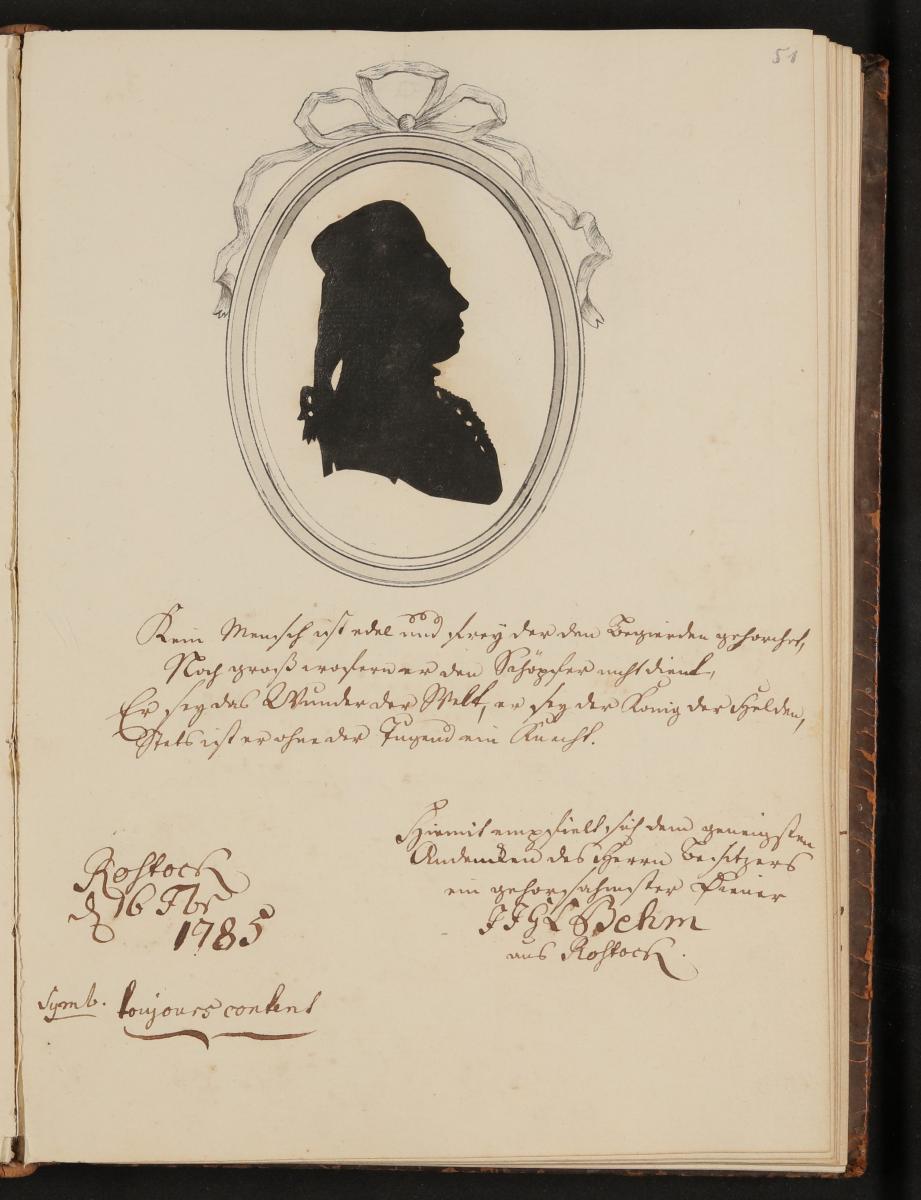 51
Kein Mensch ist edel und frey der den Begierden gehorchet,
Noch groß wofern er den Schöpfer nicht dient,
Er sey das Wunder der Welt, er sey der König der Helden,
Stets ist er ohne der Tugend ein Knecht.
Hiermit empfielt sich dem geneigsten
Andenken des Herrn Besitzers
ein gehorsahmster Diener
Behm
aus Rostock.
Rostock
d 16
1785
Symb. toujours content